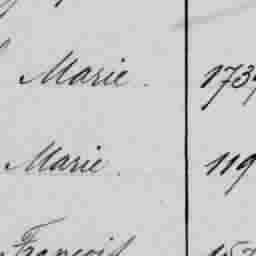 Marie. 173
Marie. 119
François